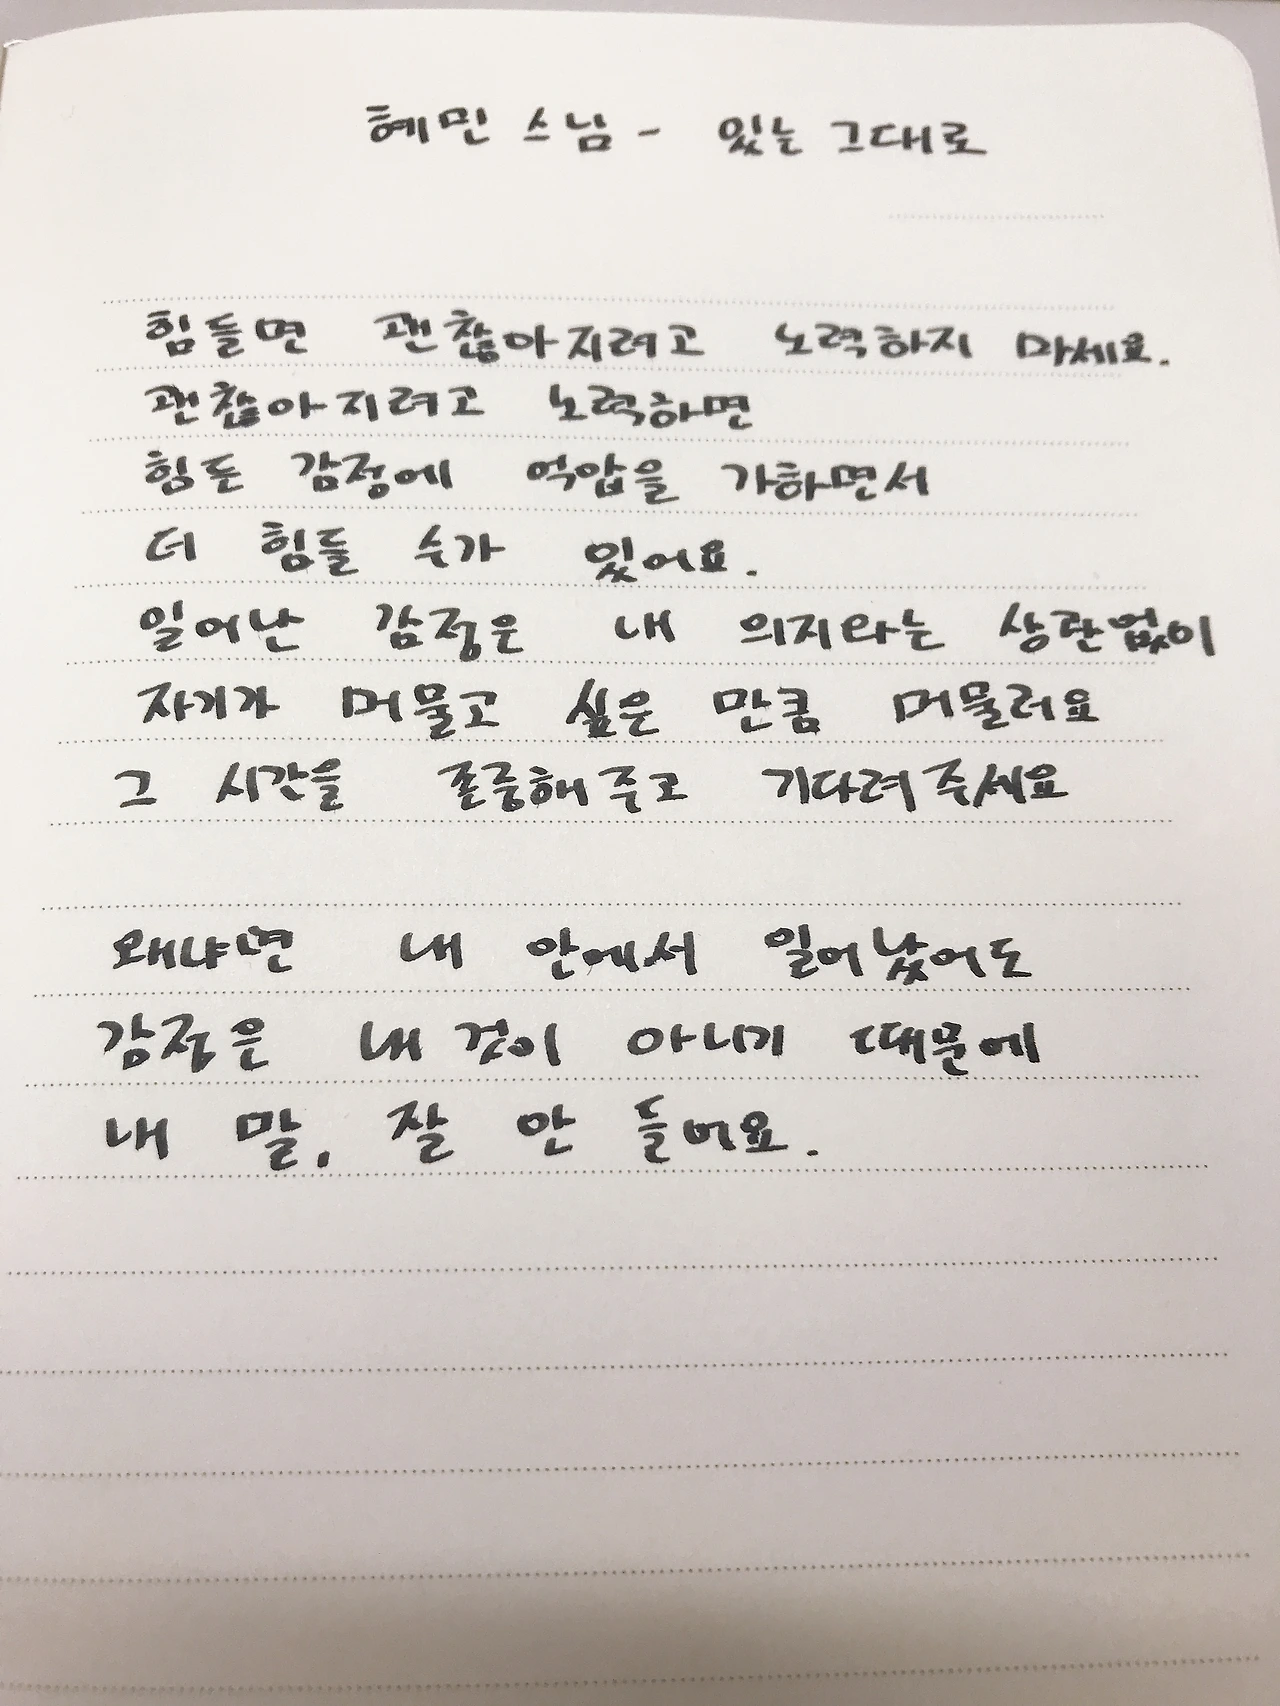 혜민 스님 - 있는 그대로
힘들면 괜찮아지려고 노력하지 마세요.
괜찮아지려고 노력하면
힘든 감정에 억압을 가하면서
더 힘들 수가 있어요.
일어난 감정은 내 의지와는 상관없이
자기가 머물고 싶은 만큼 머물러요
그 시간을 존중해주고 기다려주세요
왜냐면 내 안에서 일어났어도
감정은 내 것이 아니기 때문에
내 말, 잘 안 들어요.